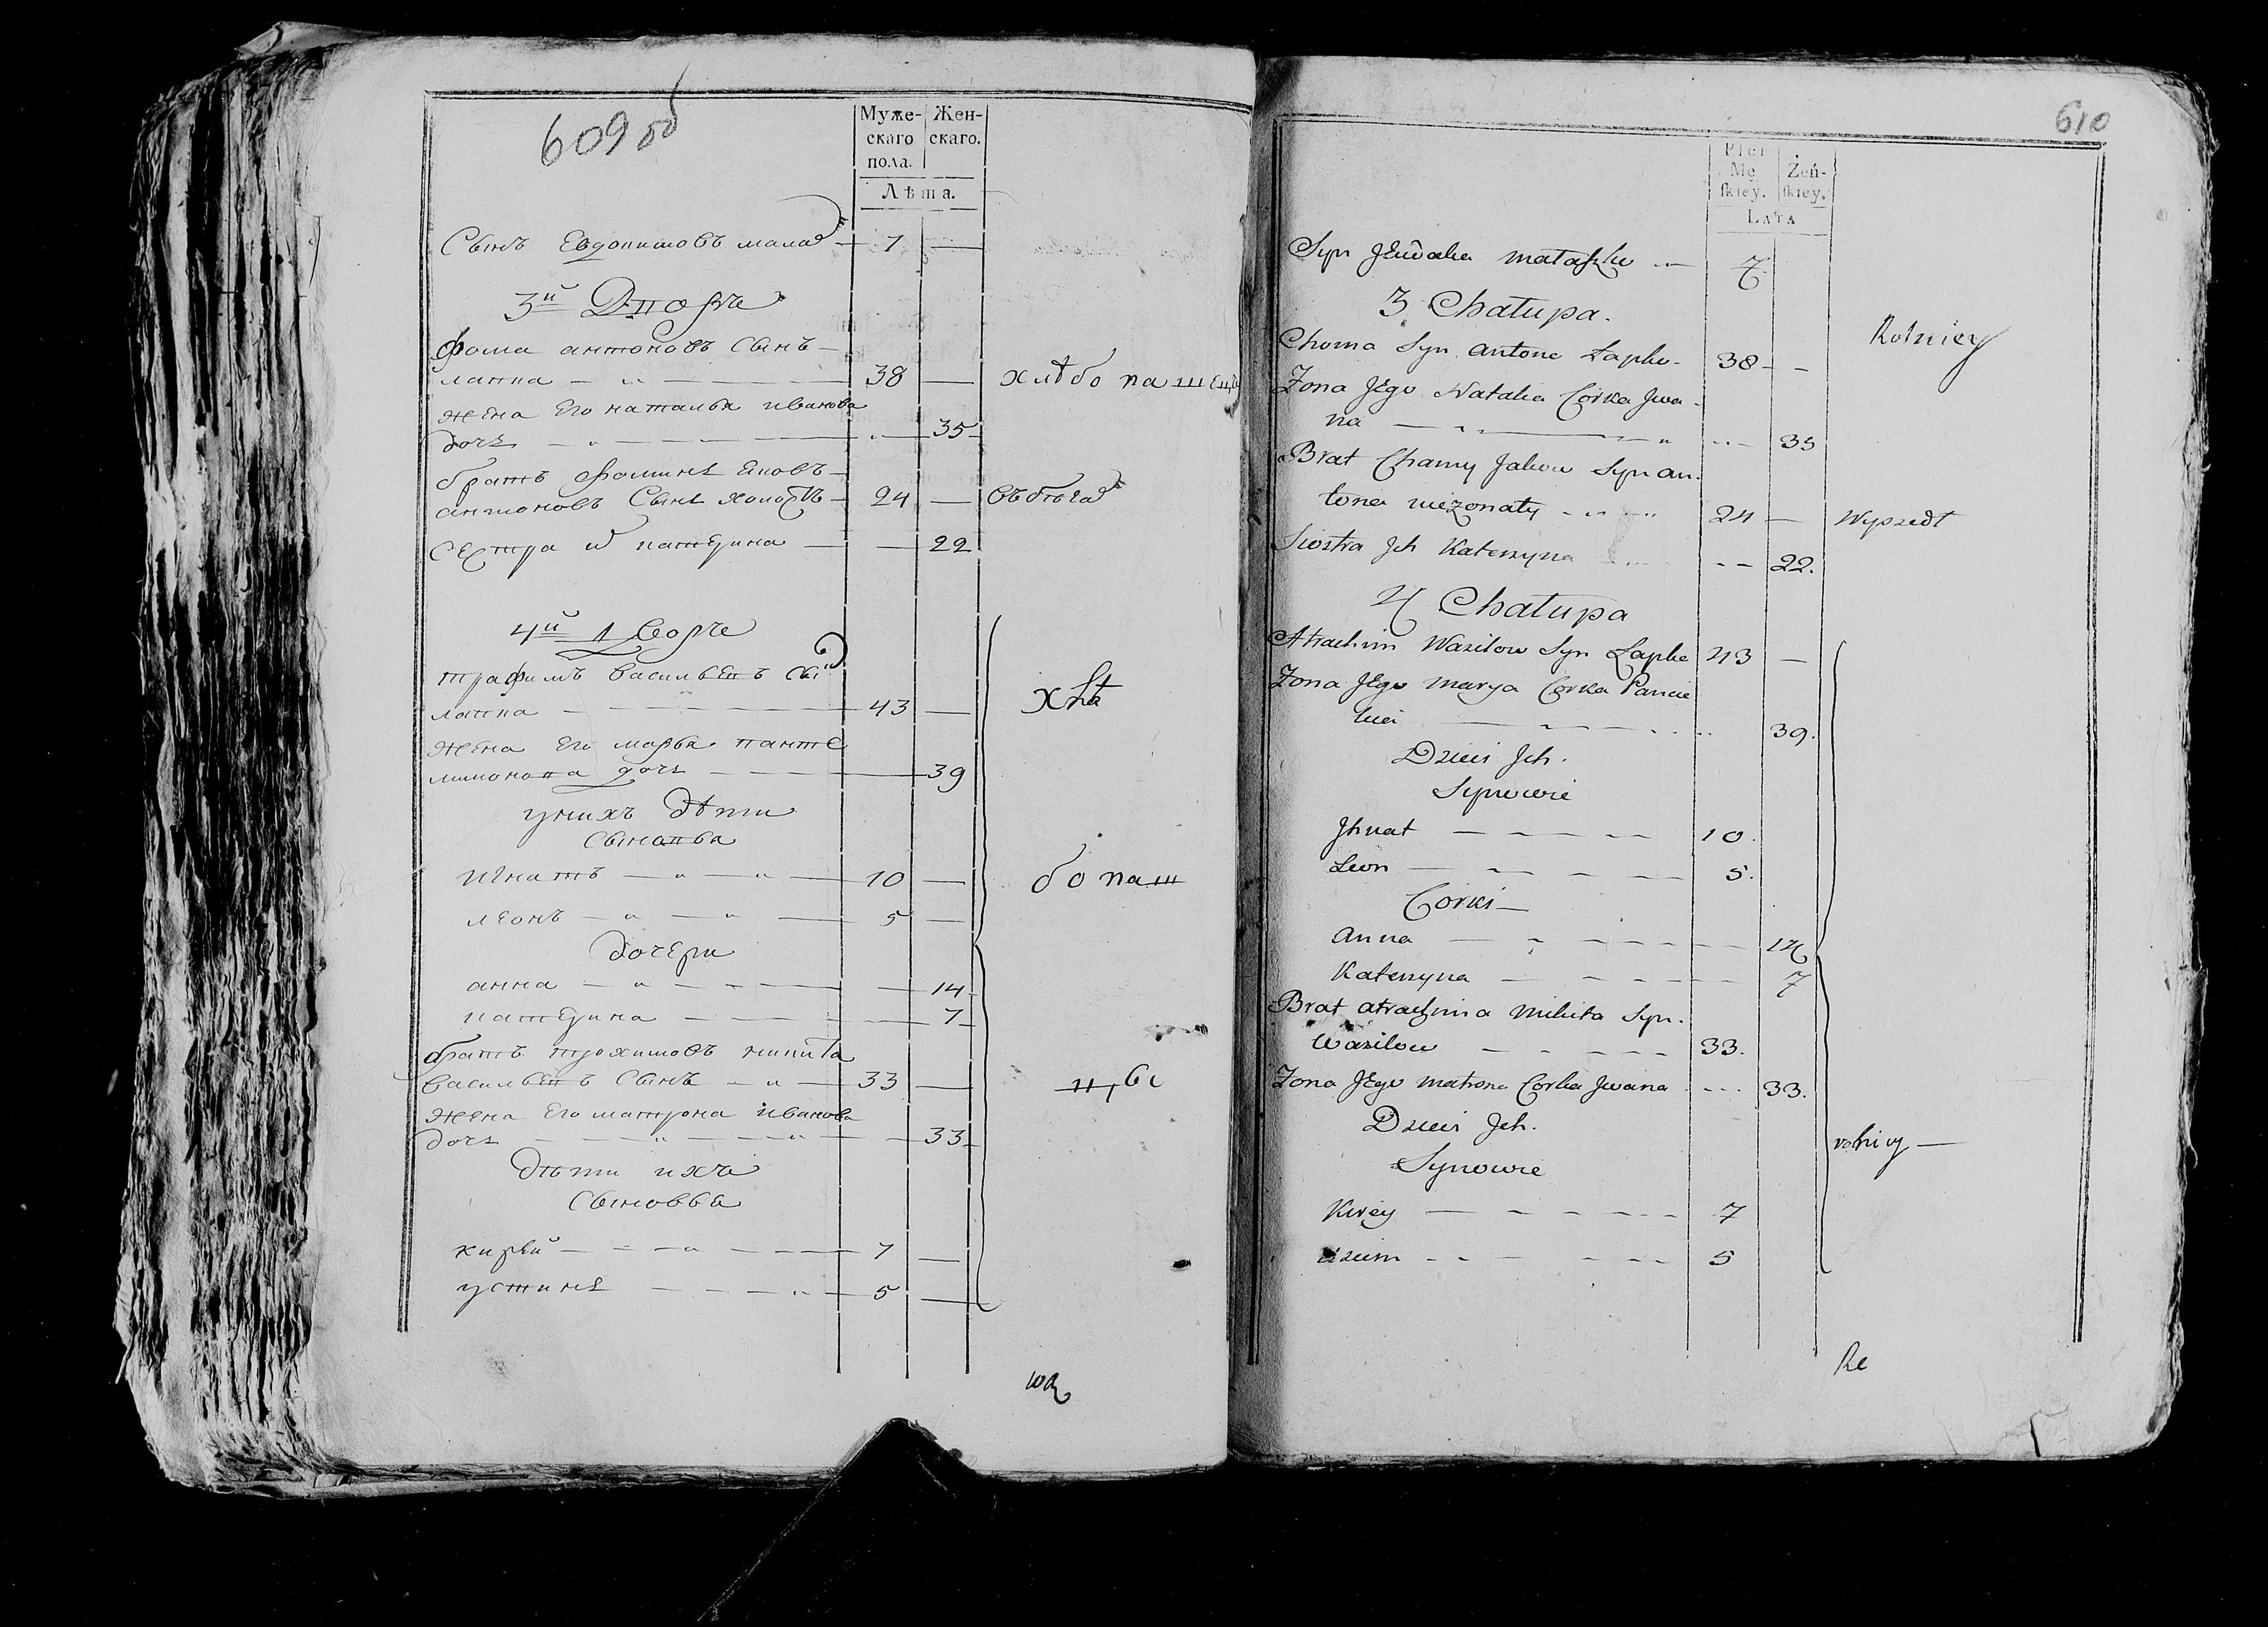 609 об
Муже- Жен-
скаго скаго.
пола.
Лѣта.
Сынъ Евдокимовъ 7
3й Дворъ
Фома антоновъ Сынъ
лапка 38 хлѣбопашецъ
жена Его наталья иванова
дочь 35
братъ Фоминъ Яковъ
антоновъ Сынъ холостъ 24 въ бѣгах
Сестра их катерина 22
4й Дворъ
трафимъ васильевъ Сы
лапка 43
жена Его марья панте
лимонова дочь 39
у нихъ дѣти
Сыновья
игнатъ 10
леонъ 5
дочери
анна 14
катерина 7
братъ трохимовъ никита
васильевъ Сынъ 33
жена Его матрона иванова
дочь 33
дѣти ихъ
Сыновья
кирѣй 7
устинъ 5
хлѣ
бопаш
цы
610
Płci
Mę Żeń-
skiey. skiey.
LATA
Syn 7
3 Chałupa.
Rolnicy
Choma Syn Antona Łapka 38
Żona Jego Natalia Corka Jwa
na 35
Brat Chomy Jakow Syn An
tona nieżonaty 24 Wyszedł
Siostra Jch Katerzyna 22.
4 Chałupa
Atrachim Wasilow Syn Łapka 43
Żona Jego Marya Corka Pancie
leia 39.
Dzieci Jch.
Synowie
Jhnat 10.
Leon 5.
Corki
Anna 14
Katerzyna 7
Brat Atrachima Mikita Syn
Wasilow 33.
Żona Jego Matrona Corka Jwana 33.
Dzieci Jch.
rolnicy
Synowie
Kirey 7
5
Re